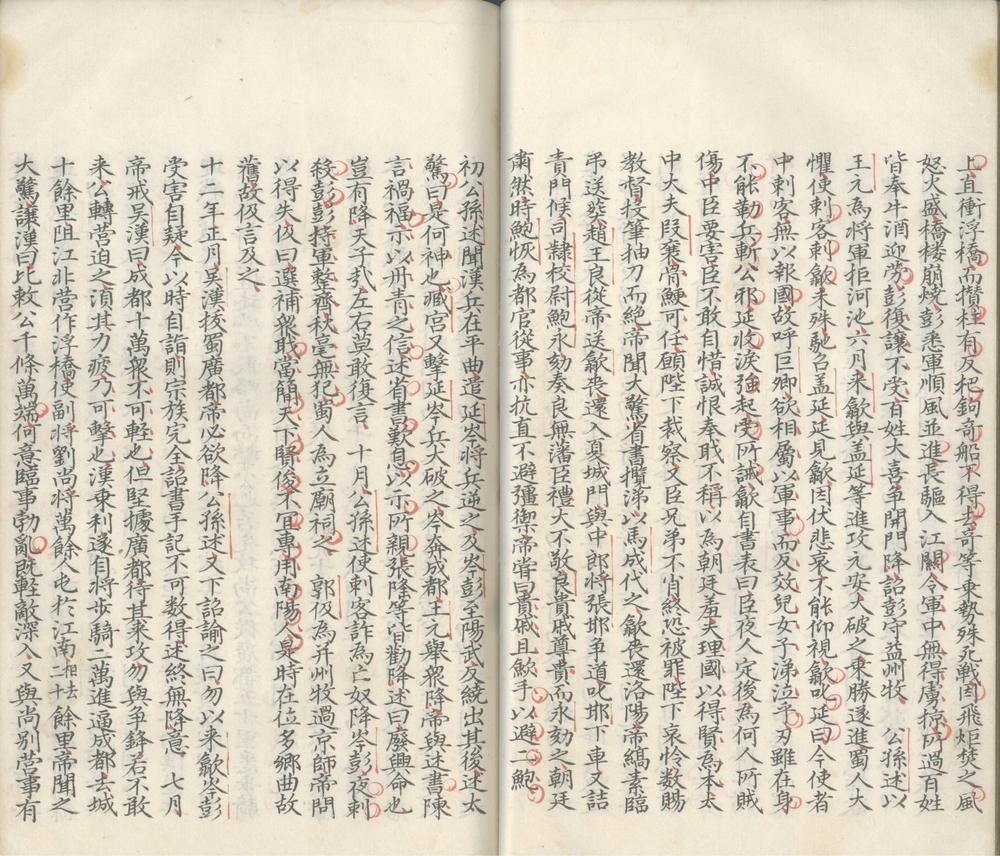 上直衝浮橋而攢柱有反杷鉤奇船不得去奇等乗勢殊死戰因飛炬焚之風
怒火盛橋楼崩燒彭悉軍順風並進長驅入江關令軍中無得虜掠所過百姓
皆奉牛酒迎勞彭復讓不受百姓大喜爭開門降詔彭守益州牧公孫述以
王元為將軍拒河池六月来歙與盖延等進攻元安大破之乗勝遂進蜀人大
懼使刺客刺歙未殊馳召盖延延見歙因伏悲哀不能仰視歙叱延曰今使者
中刺客無以報國故呼巨卿欲相屬以軍事而反效兒女子涕泣乎刃雖在身
不能勒兵斬公邪延收淚強起受所誡歙自書表曰臣夜人定後為何人所賊
傷中臣要害臣不敢自惜誠恨奉職不稱以為朝廷羞夫理國以得賢為本太
中大夫段襄骨鯁可任願陛下裁察又臣兄弟不肖終恐被罪陛下哀怜数賜
教督投筆抽刀而絶帝聞大驚省書攬涕以馬成代之歙喪還洛陽帝縞素臨
弔送葬趙王良從帝送歙喪還入夏城門與中郎將張邯爭道叱邯下車又詰
責門候司隸校尉鮑永劾奏良無藩臣禮大不敬良貴戚尊貴而永劾之朝廷
肅然時鮑恢為都官從事亦抗直不避彊禦帝嘗曰貴戚且歛手以避二鮑
初公孫述聞漢兵在平曲遣延岑將兵逆之及岑彭至陽武反繞出其後述太
驚曰是何神也臧宮又擊延岑兵大破之岑奔成都王元舉衆降帝與述書陳
言禍福示以丹青之信述省書歎息以示所親張隆等皆勸降述曰廢興命也
豈有降天子哉左右莫敢復言十月公孫述使刺客詐為亡奴降岑彭夜刺
殺彭彭持軍整齊秋毫無犯蜀人為立廟祠之郭伋為并州牧過京師帝問
以得失伋曰選補衆職當簡天下賢俊不宜專用南陽人是時在位多鄉曲故
舊故伋言及之
十二年正月吴漢拔蜀廣都帝必欲降公孫述又下詔諭之曰勿以来歙岑彭
受害自疑今以時自詣則宗族完全詔書手記不可数得述終無降意七月
帝戒吴漢曰成都十萬衆不可輕也但堅據廣都待其来攻勿與爭鋒若不敢
来公轉營迫之須其力疲乃可擊也漢乗利遂自將步騎二萬進逼成都去城
十餘里阻江北營作浮橋使副將劉尚將萬餘人屯於江南相去二十餘里帝聞之
大驚讓漢曰比敕公千條萬端何意臨事勃亂既輕敵深入又與尚别營事有